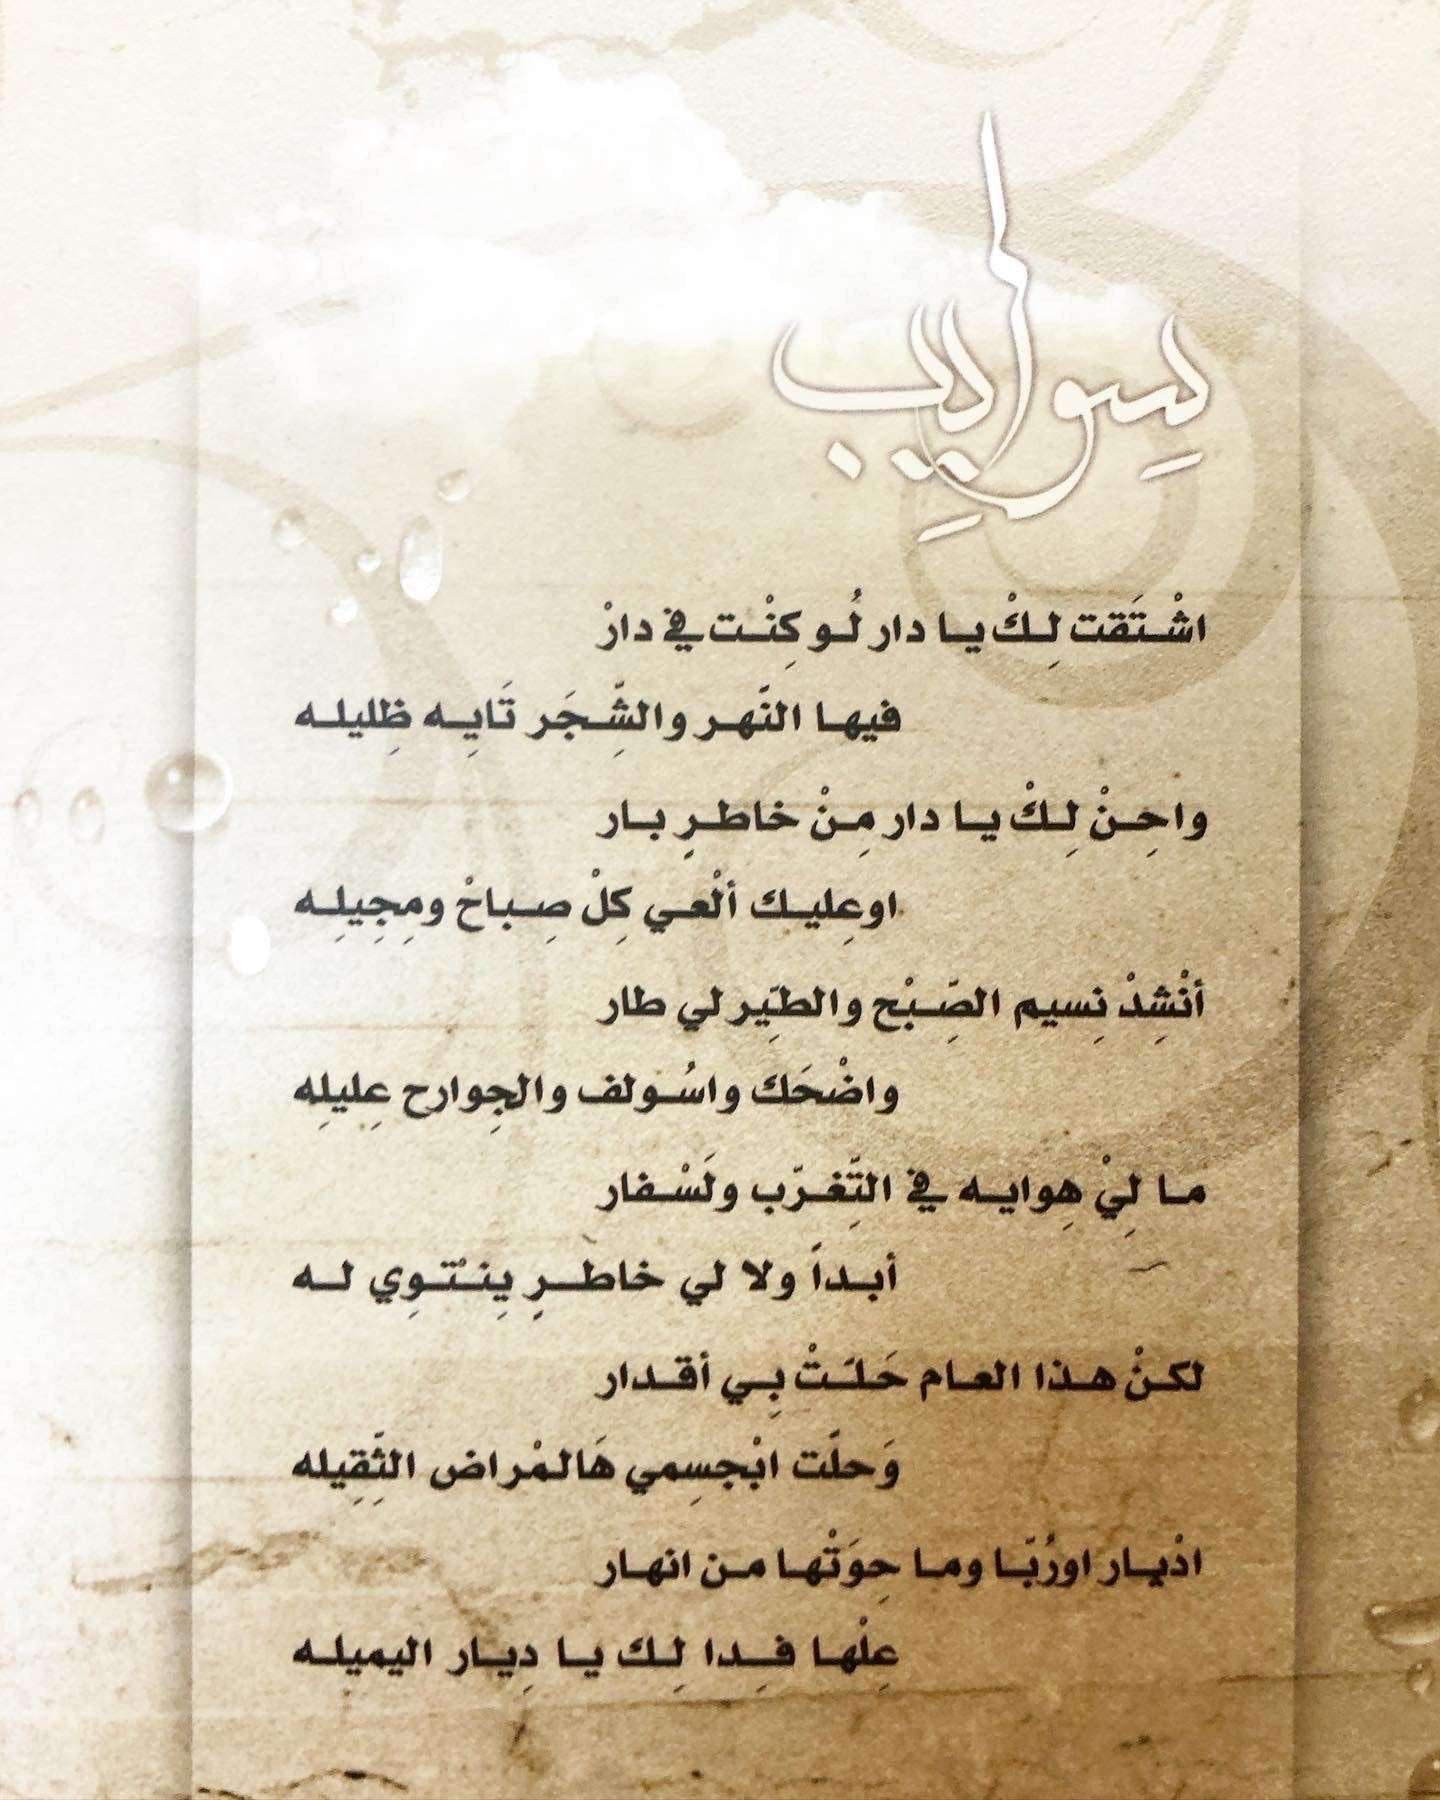 سواييب
اشْتَقت لِكْ يا دار لُو كِنْت في دارْ
فيها النَّهر والشِّجَر تَايِه ظِليله
واحِنْ لِكْ يا دار مِنْ خاطرٍ بار
اوعِليك ألْعي كِلْ صِباحْ ومِجِيلِه
أنْشِدْ نِسيم الصِّبْح والطيِّر لي طار
واضْحَك واسُولف والجِوارح عِليلِه
ما لِيْ هِوايه في التِّغرّب ولَسْفار
أبداً ولا لي خاطرٍ يِنْتوِي له
لكنْ هذا العام حَلَّتْ بِي أقدار
وَحلَّت ابْجسِمي هَالمْراض الثِّقِيله
ادْيار اورُبّا وما حِوَتْها من انهار
عِلْها فِدا لِك يا دِيار اليميله